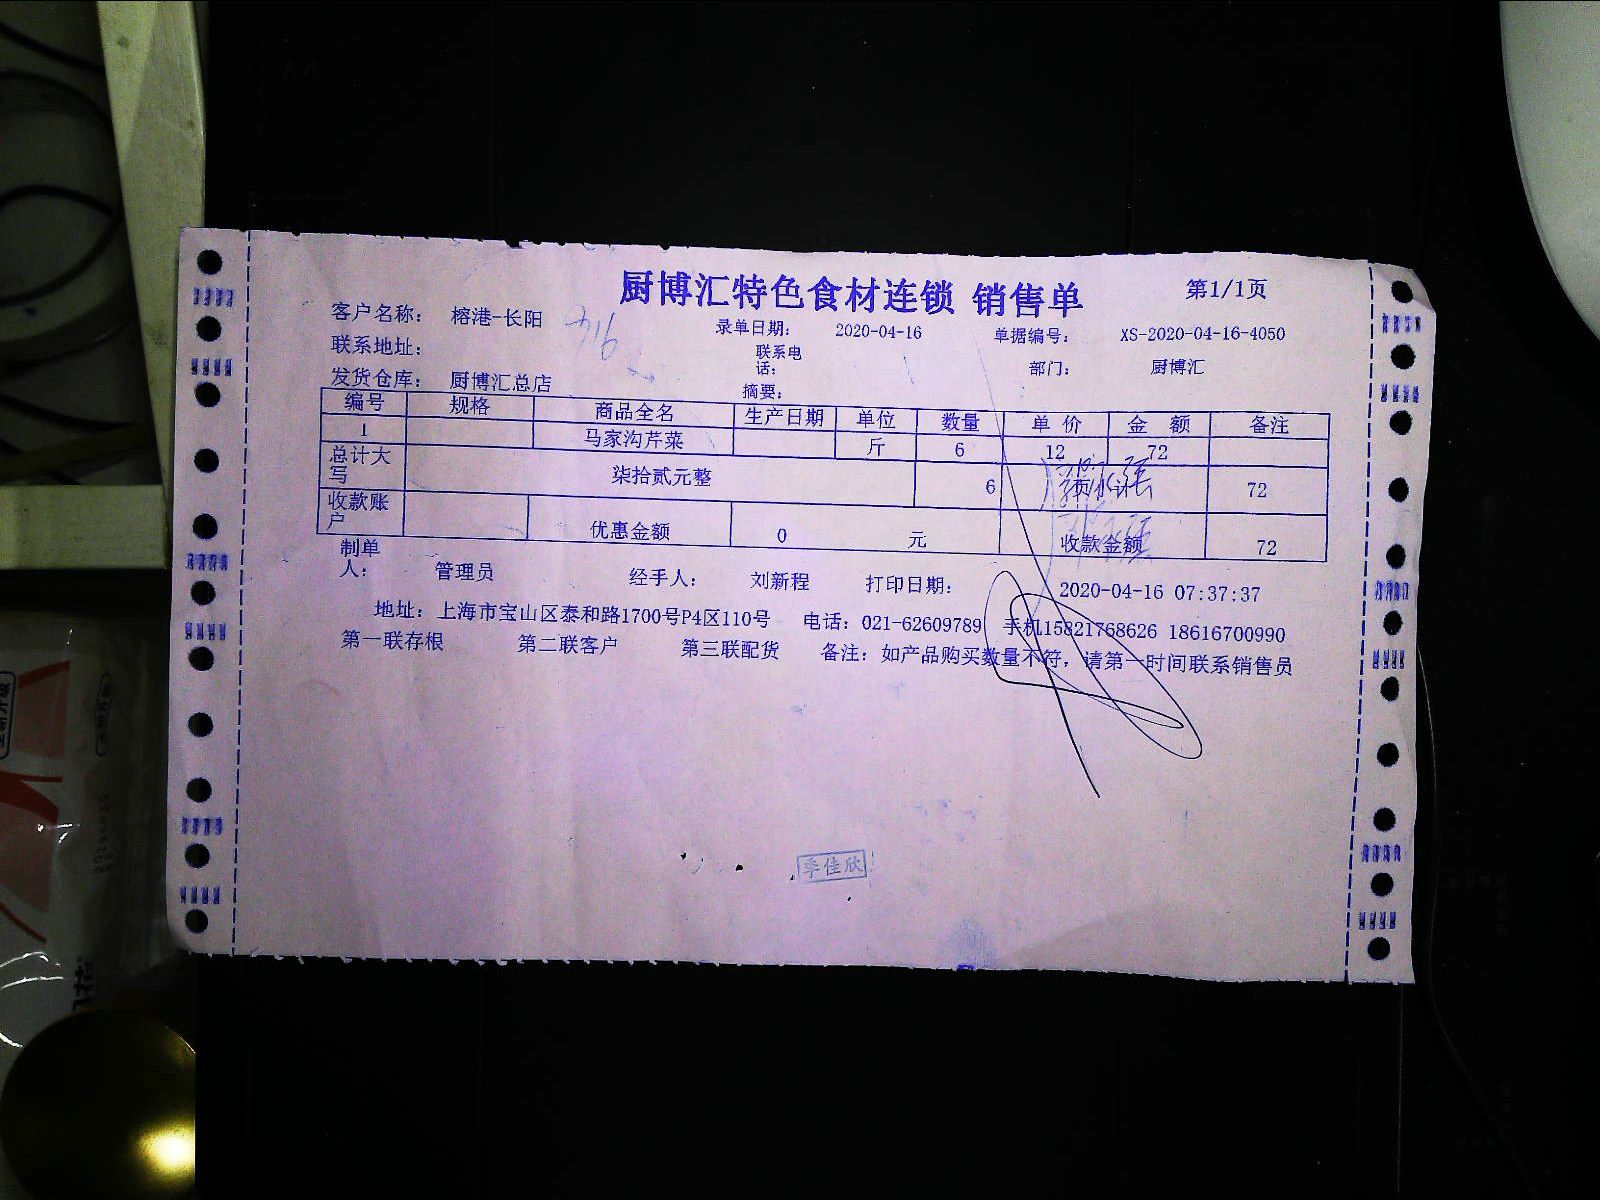 厨博汇特色食材连锁 销售单 第1/1页
客户名称： 榕港-长阳 录单日期： 2020-04-16 单据编号： XS-2020-04-16-4050
联系地址： 联系电话： 部门： 厨博汇
发货仓库： 厨博汇总店 摘要：
编号 规格 商品全名 生产日期 单位 数量 单 价 金 额 备注
1 马家沟芹菜 斤 6 12 72
总计大写 柒拾贰元整 6 页小计 72
收款账户 优惠金额 0 元 收款金额 72
制单人： 管理员 经手人： 刘新程 打印日期： 2020-04-16 07:37:37
地址：上海市宝山区泰和路1700号P4区110号 电话：021-62609789 手机15821768626 18616700990
第一联存根 第二联客户 第三联配货 备注：如产品购买数量不符，请第一时间联系销售员
季佳欣